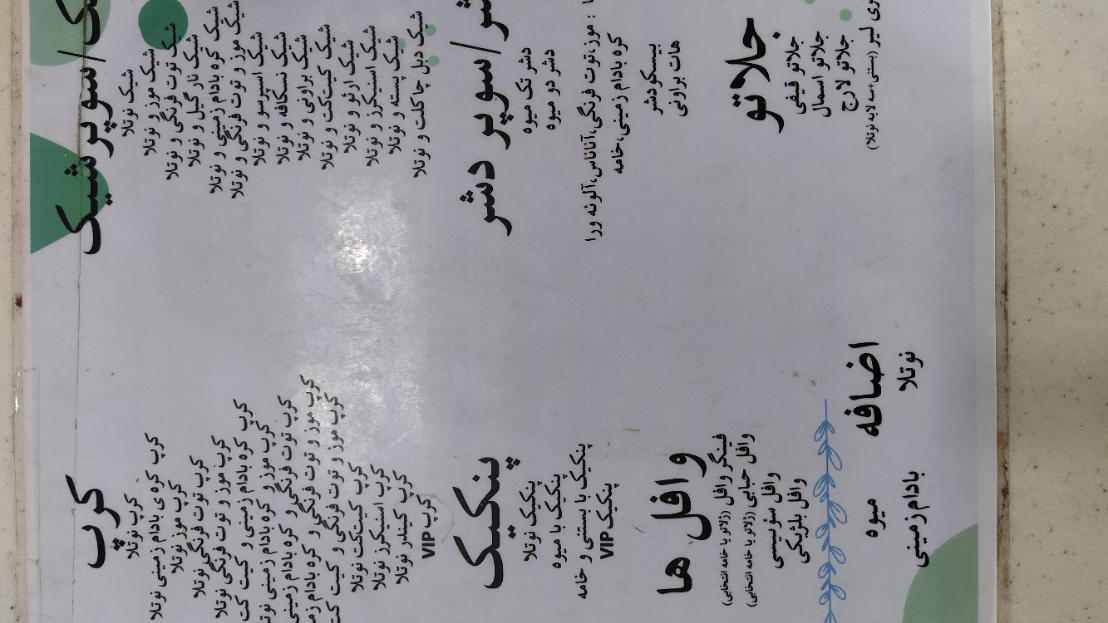 کرپ
کرپ نوتلا
کرپ کره ی بادام زمینی نوتلا
کرپ موز نوتلا
کرپ توت فرنگی نوتلا
کرپ موز توت فرنگی نوتلا
کره بادام زمینی و کیت کت
کرپ موز کره بادام زمینی
کرپ توت فرنگی و کره بادام زمینی
کرپ موز و توت فرنگی و کره بادام
کرپ موز و توت فرنگی و کیت کت
کرپ کیتکت نوتلا
کرپ اسنیکرز نوتلا
کرپ کیندر نوتلا
کرپ VIP
پنکیک
پنکیک نوتلا
پنکیک با میوه
پنکیک با بستنی و خامه
پنکیک VIP
وافل ها
فینگر وافل (ژلاتو یا خامه انتخابی)
وافل حبابی (ژلاتو یا خامه انتخابی)
وافل سوئیسی
وافل بلژیکی
اضافه
میوه
نوتلا
بادام زمینی
/سوپرشیک
شیک نوتلا
شیک موز و نوتلا
شیک توت فرنگی و نوتلا
شیک نارگیل و نوتلا
شیک کره بادام زمینی و نوتلا
شیک موز و توت فرنگی و نوتلا
شیک اسپرسو و نوتلا
شیک نسکافه و نوتلا
شیک براونی و نوتلا
شیک کیتکت و نوتلا
شیک ارئو و نوتلا
شیک اسنیکرز و نوتلا
شیک پسته و نوتلا
شیک دبل چاکلت و نوتلا
/سوپر دشر
دشر تک میوه
دشر دو میوه
: موز،توت فرنگی،آناناس،آلوئه ورا
کره بادام زمینی،خامه
بیسکودشر
هات براونی
جلاتو
جلاتو قیفی
جلاتو اسمال
جلاتو لارج